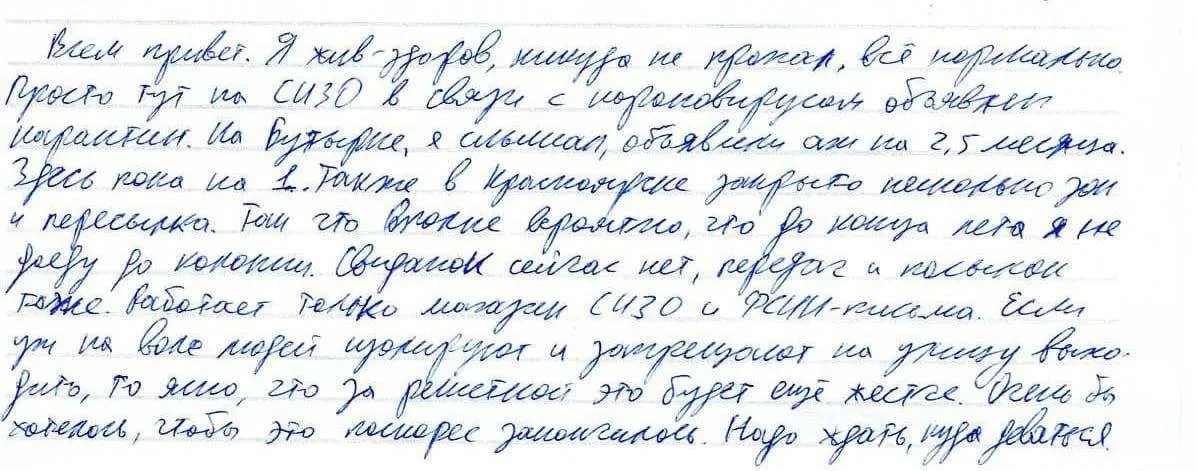 Всем привет. Я жив-здоров, никуда не пропал, всё нормально.
Просто тут на СИЗО в связи с короновирусом объявлен
карантин. На Бутырке, я слышал, объявили аж на 2,5 месяца.
Здесь пока на 1. Также в Красноярске закрыто несколько зон
и пересылка. Так что вполне вероятно, что до конца лета я не
доеду до колонии. Свиданок сейчас нет, передач и посылок
тоже. Работает только магазин СИЗО и ФСИН-письма. Если
уж на воле людей изолируют и запрещают на улицу выхо-
дить, то ясно, что за решеткой это будет ещё жестче. Очень бы
хотелось, чтобы это поскорее закончилось. Надо ждать, куда деваться.